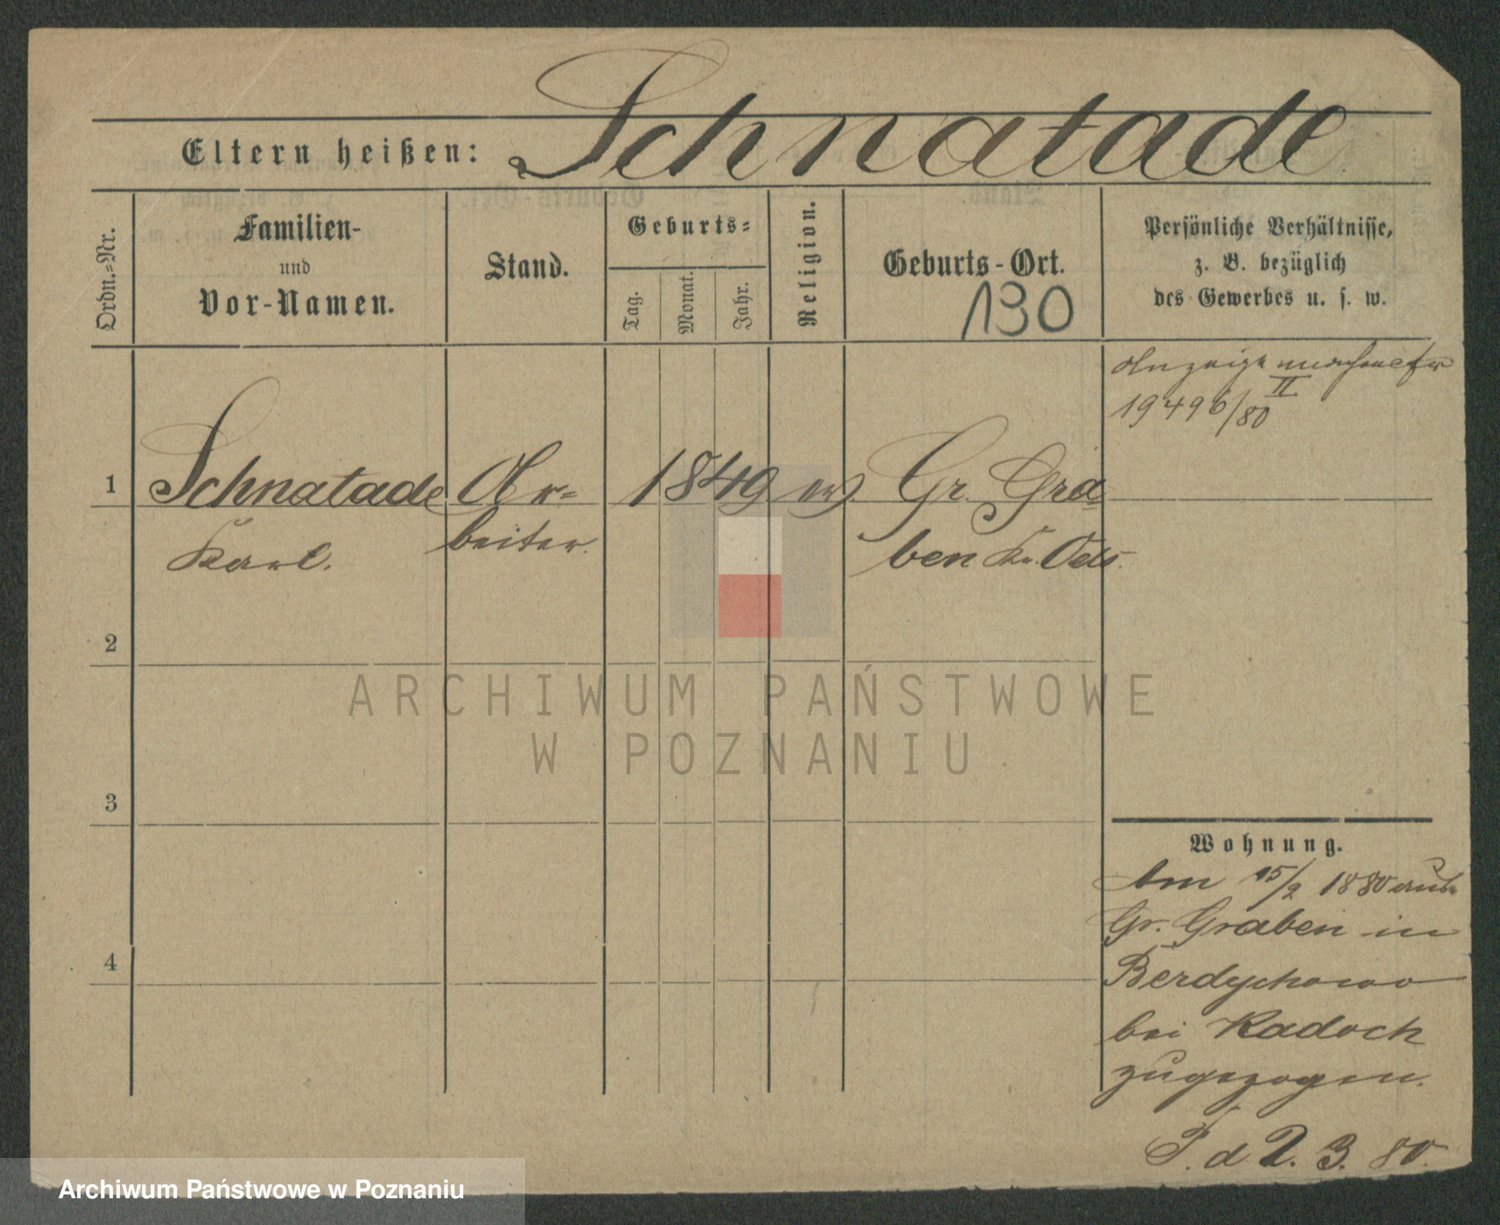 Eltern heißen: Schnatade
Ordn.-Nr.
Familien-
und
Vor-Namen.
Stand.
Geburts-
Tag.
Monat.
Jahr.
Religion.
Geburts-Ort.
130
Persönliche Verhältnisse,
z. B. bezüglich
des Gewerbes u. s. w.
Anzeige
II
19496/80
1 Schnatade Ar- 1849 ev Gr. Gra
Karl. beiter. ben Kr. Oels.
2
3
4
ARCHIWUM PAŃSTWOWE
W POZNANIU
Wohnung.
Am 15/2 1880 aus
Gr. Graben in
Berdychowo
bei Kadoch
zugezogen.
P. d 2. 3. 80.
Archiwum Państwowe w Poznaniu